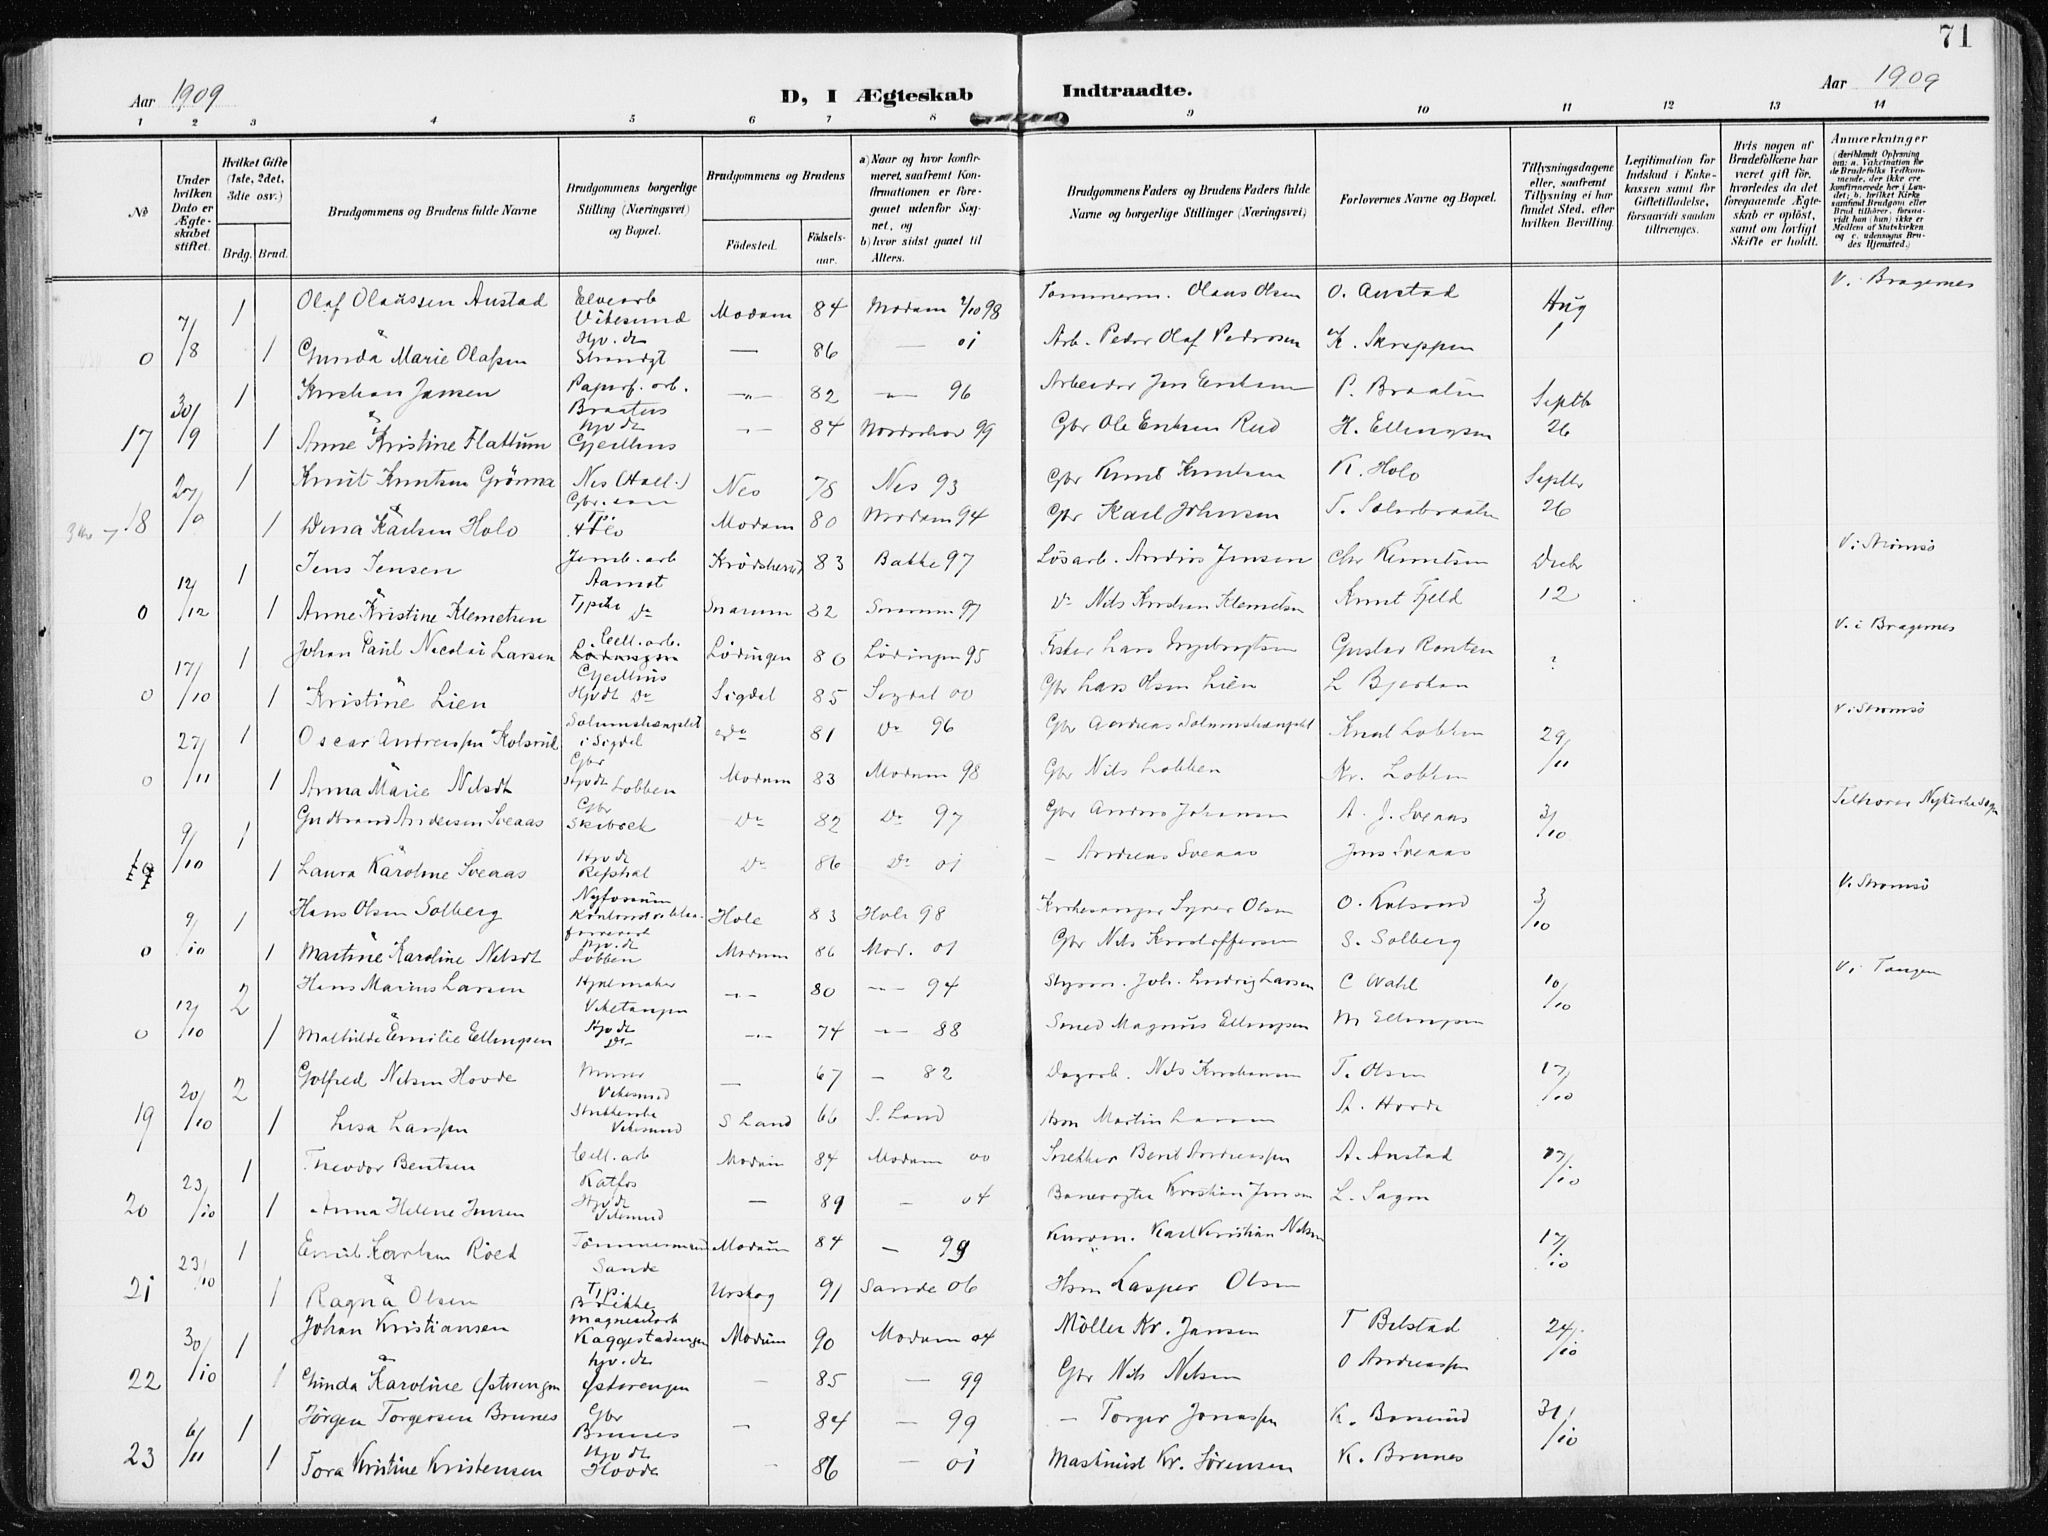 71
Aar 1909 D, I Ægteskab Indtraadte. Aar 1909
1 2 3 4 5 6 7 8 9 10 11 12 13 14
No
Under hvilken Dato er Ægteskabet stiftet.
Hvilket Gifte (1ste, 2det, 3die osv.)
Brdg. Brud.
Brudgommens og Brudens fulde Navne
Brudgommens borgerlige Stilling (Næringsvei) og Bopæl.
Brudgommens og Brudens
Fødested.
Fødselsaar.
a) Naar og hvor konfirmeret, saafremt Konfirmationen er foregaaet udenfor Sognet, og
b) hvor sidst gaaet til Alters.
Brudgommens Faders og Brudens Faders fulde Navne og borgerlige Stillinger (Næringsvei)
Forlovernes Navne og Bopæl.
Tillysningsdagene eller, saafremt Tillysning ei har fundet Sted, efter hvilken Bevilling.
Legitimation for Indskud i Enkekassen samt for Giftetilladelse, forsaavidt saadan tiltrænges.
Hvis nogen af Brudefolkene har været gift før, hvorledes da det foregaaende Ægteskab er opløst, samt om lovligt Skifte er holdt.
Anmærkninger
(deriblandt Oplysning om: a. Vakcination for de Brudefolks Vedkommende, der ikke ere konfirmerede her i Landet; b. hvilket Kirkesamfund Brudgom eller Brud tilhører, forsaavidt han (hun) ikke er Medlem af Statskirken og c. udensogns Brudes Hjemsted.)
7/8 1 Olaf Olaussen Anstad Elvearb Vikesund Modum 84 Modum 2/10 98 Tømmerm. Olaus Olsen O. Anstad Aug 1 V. i Bragernes
0 1 Gunda Marie Olafsen Hjv. dr Strandgt — 86 — 01 Arb. Peder Olaf Pedersen K. Skreppen
30/9 1 Kristian Jansen Papirf. arb. Braaten -"- 82 -"- 96 Arbeider Jens Eriksen P. Braaten Septbr 26
17 1 Anne Kristine Flattum Hjv dr Geithus -"- 84 Norderhov 99 Gbr Ole Eriksen Rud H. Ellingsen
1 Knut Knutsen Grønna Nes (Hall.) Gbr. Nes 78 Nes 93 Gbr Knut Knutsen K. Holo Septbr 26
18 1 Dina Karlsen Holo Tp. Holo Modum 80 Modum 94 Gbr Karl Johnsen T.
12/12 1 Jens Jensen Jernb. arb Aamot Krødsherad 83 Bakke 97 Løsarb. Anders Jensen Chr Klemetsen Decbr 12 V. i Strømsø
0 1 Anne Kristine Klemetsen Do Snarum 82 Snarum 97 Do Nils Kristian Klemetsen Knut Fjeld
17/10 1 Johan Paul Nicolai Larsen Cell. arb. Geithus Lødingen 80 Lødingen 95 Fisker Lars Ingebrigtsen Gustav Ronten ? V. i Bragernes
0 1 Kristine Lien Hjvdt Do Sigdal 85 Sigdal 00 Gbr Lars Olsen Lien L Bjerkan
27/11 1 Oscar Andreassen Kolsrud i Sigdal Gbr do 81 Do 96 Gbr Andreas Knut Lobben 29/11 V. i Strømsø
0 1 Anna Marie Nilsdt Hjvdt Lobben Modum 83 Modum 98 Gbr Nils Lobben Kr. Lobben
9/10 1 Gudbrand Andersen Sveaas Gbr Skibrek Do 82 Do 97 Gbr Anders Johansen A. J. Sveaas 3/10 Tilhører Nykirke Sogn
1 Laura Karoline Sveaas Hjv dt Refsdal Do 86 Do 01 — Andreas Sveaas Jens Sveaas
9/10 1 Hans Olsen Solberg Nyfossum Hole 83 Hole 98 Kirkesanger Syver Olsen O. Kolsrud 3/10 V. Strømsø
0 1 Martine Karoline Nilsdt Hjv. dt Lobben Modum 86 Mod. 01 Gbr Nils Kristoffersen S. Solberg
12/10 2 Hans Marius Larsen Viketangen -"- 80 -"- 94 Styrm. Joh. Ludvig Larsen C Wahl 10/10 V. i Tangen
0 1 Mathilde Emilie Ellingsen Hjv dt Do -"- 74 -"- 88 Smed Magnus Ellingsen M Ellingsen
20/10 2 Golfred Nilsen Hovde Murer Vikesund — 67 — 82 Dagarb. Nils Kristiansen T. Olsen 17/10
19 1 Lusa Larssen Vikesund S Land 66 S. Land Hsm Martin Larsen A. Hovde
23/10 1 Theodor Bentsen Cell. arb Katfos Modum 84 Modum 00 Snekker Bent Andreassen A. Anstad 17/10
20 1 Anna Helene Jensen Hjv dt Vikesund — 89 — 04 Banevogter Kristian Jensen L. Sagen
23/10 1 Emil Karlsen Røed Tømmermand Sande Modum 84 — 99 Karl Kristian Nilsen 17/10
21 1 Ragna Olsen Tjp. Brække Urskog 91 Sande 06 Hsm Kasper Olsen
30/10 1 Johan Kristiansen Magnesitarb Kaggestadengen Modum 90 Modum 04 Møller Kr. Jansen T Belstad 24/10
22 1 Gunda Karoline Østerengen Hjv. dt Østerengen — 85 — 99 Gbr Nils Nilsen O Andreassen
6/11 1 Jørgen Torgersen Brunes Gbr Brunes — 84 — 99 — Torger Jonassen K. 31/10
23 1 Tora Kristine Kristensen Hjv dt Hovde — 86 — 01 Maskinist Kr. Sørensen K. Brunes